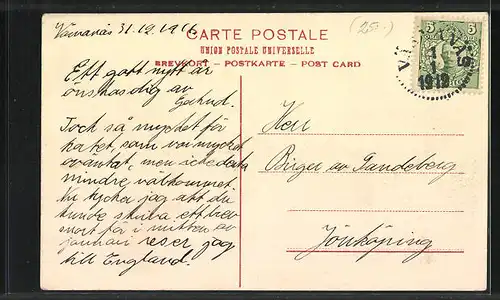 31.12.191
CARTE POSTALE
(25:-)
UNION POSTALE UNIVERSELLE
BREVKORT – POSTKARTE – POST CARD
Ett gott nytt år
önskas dig av
Tack så mycket för
kortet, som var mycket
oväntat, men icke desto
mindre välkommet.
Nu tycker jag att du
kunde skriva ett brev
snart för i mitten av
januari reser jag
till England.
Herr
Birger av
Jönköping
5 5
1912